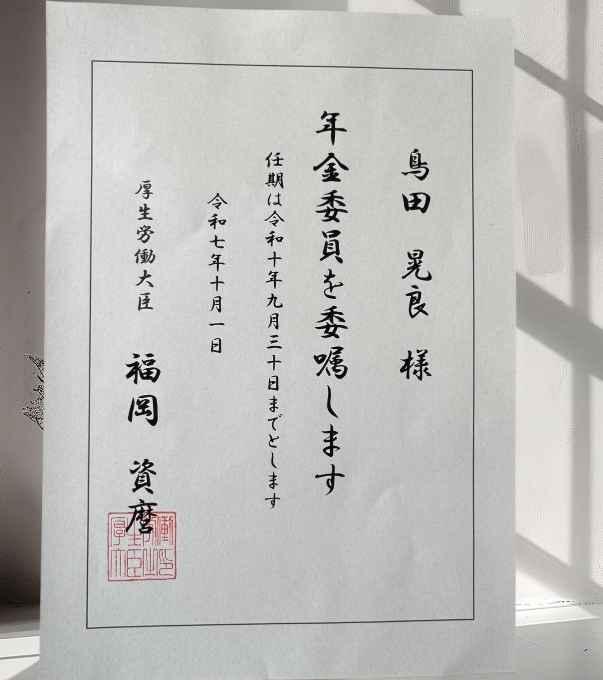 島田 晃良 様
年金委員を委嘱します
任期は令和十年九月三十日までとします
令和七年十月一日
厚生労働大臣 福岡 資麿